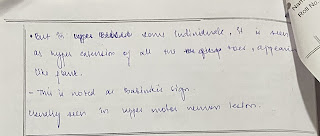 • But in some individuals, it is seen
as hyper extension of all the toes, appearing
like fan.
- This is noted as Babinski's sign.
Usually seen in upper motor neuron lesion.
Roll No.